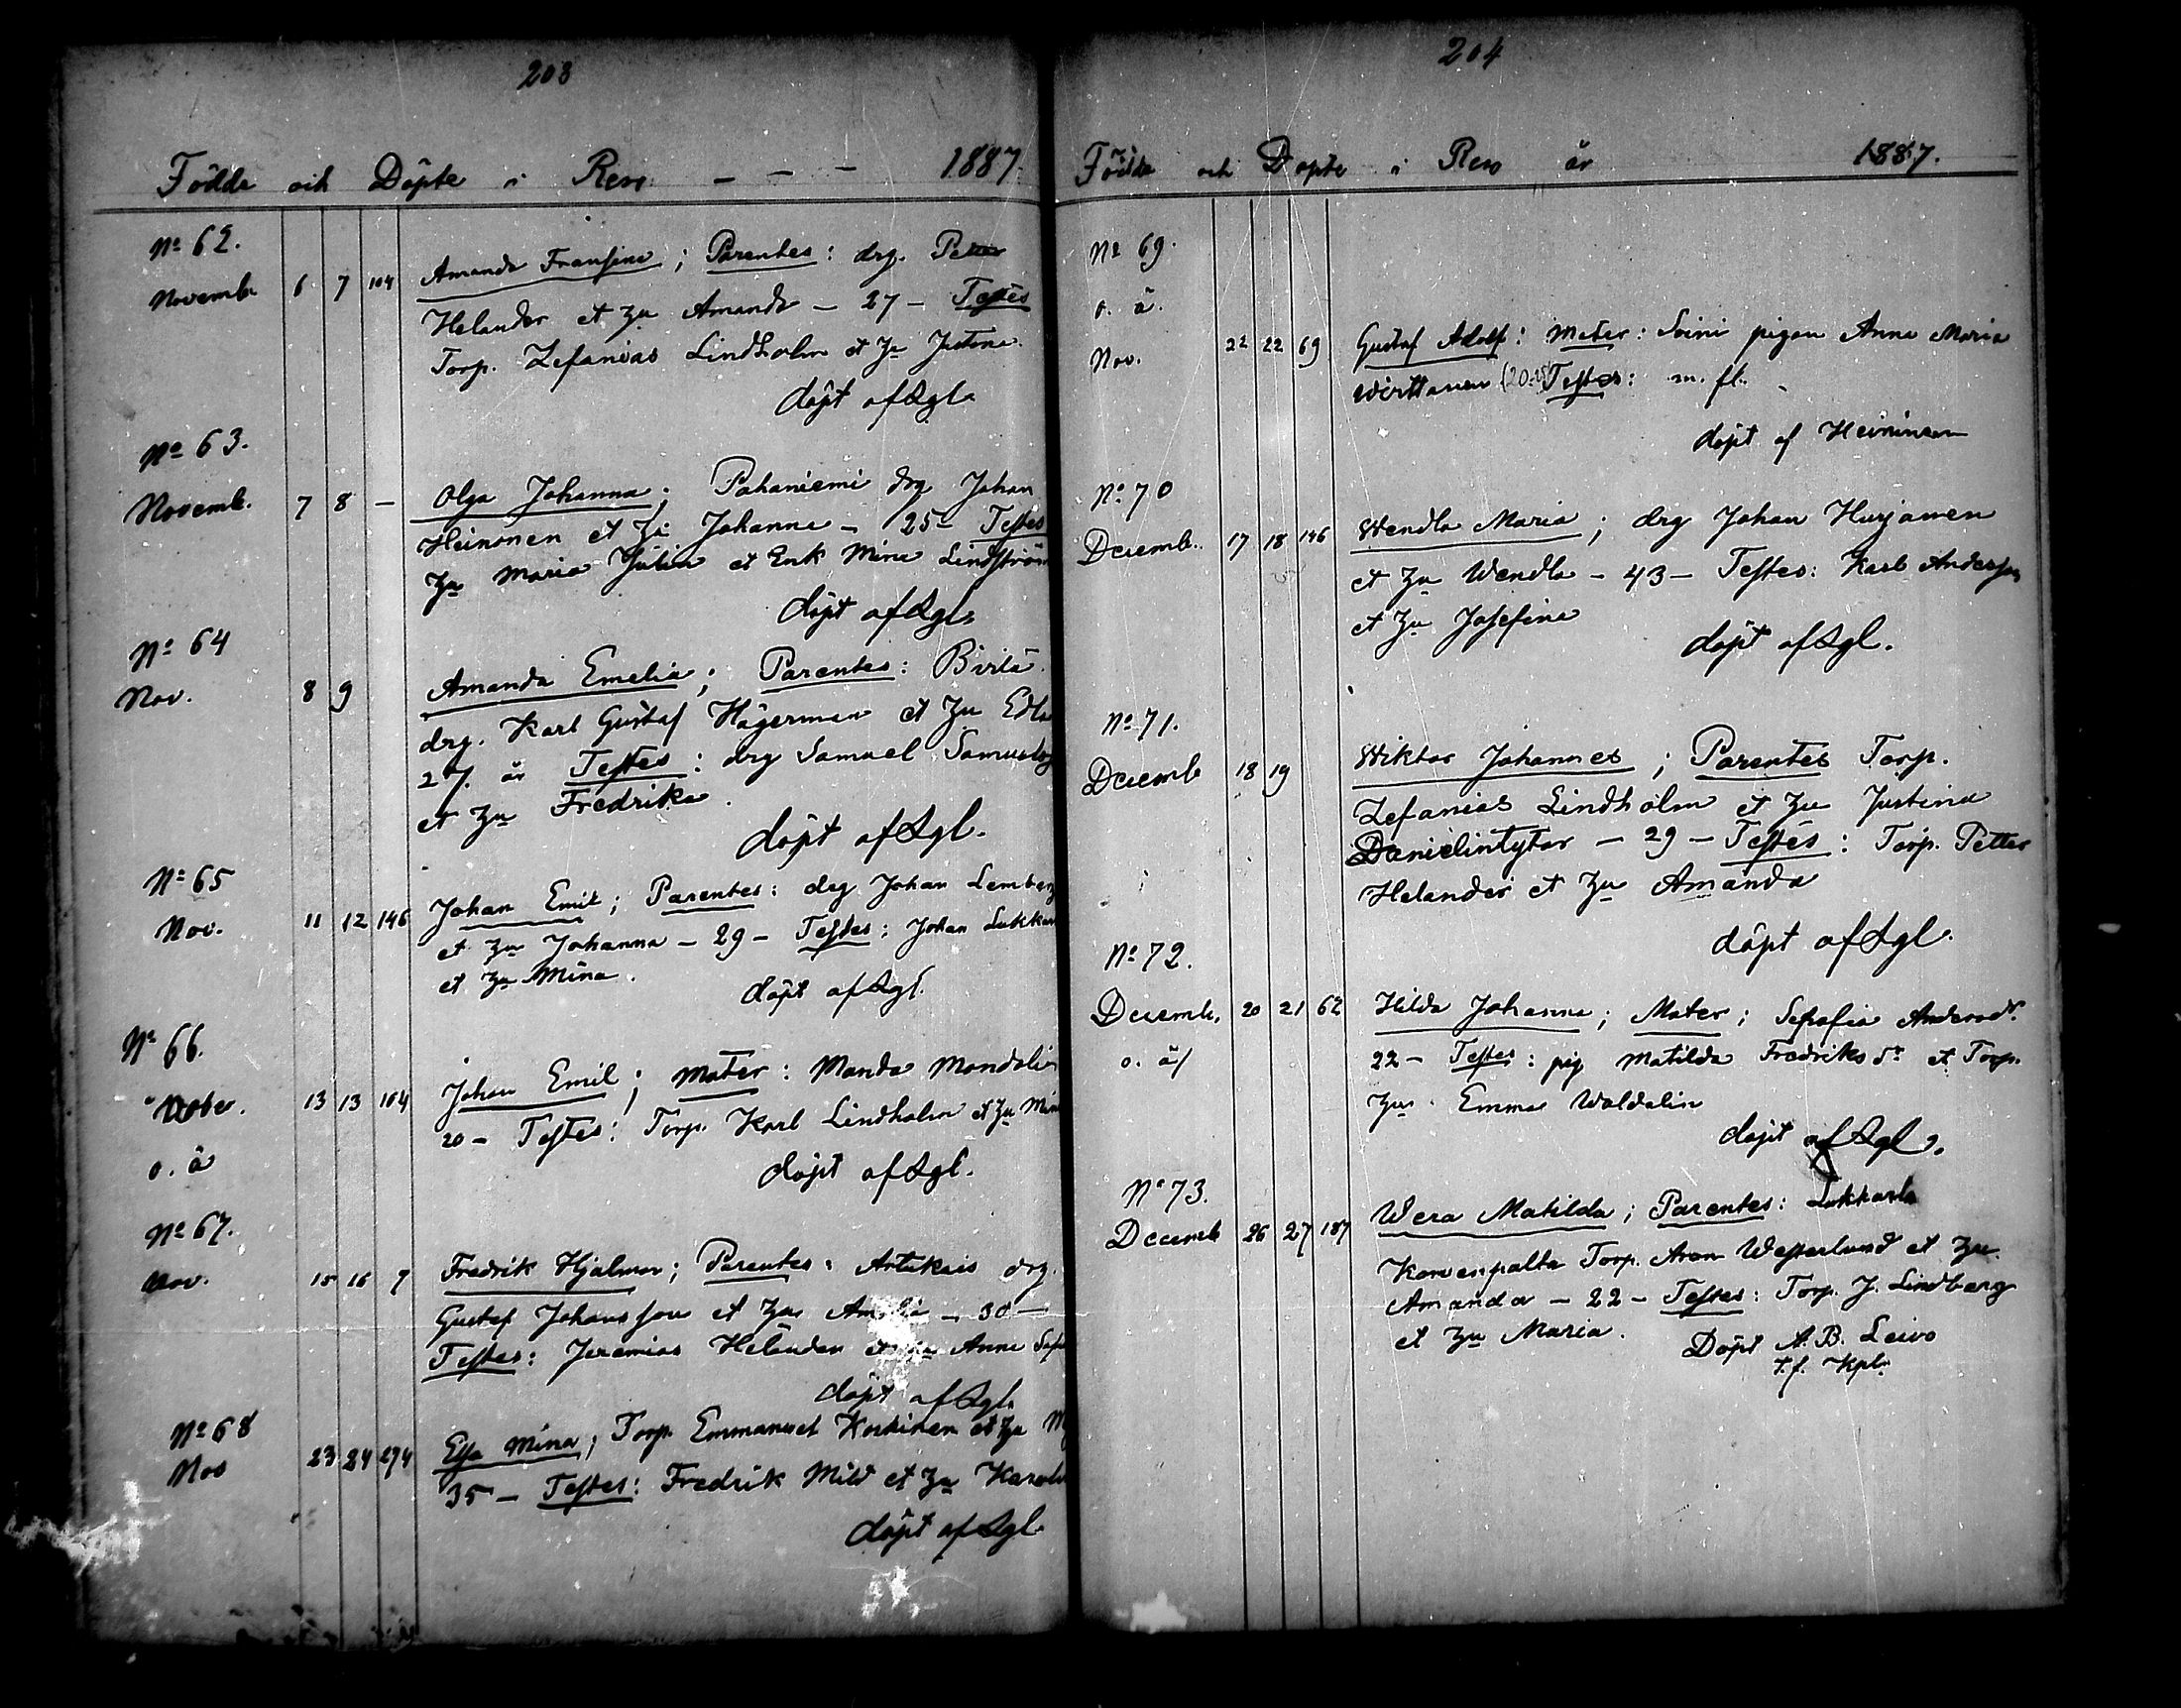 203
Födde och Döpte i Reso - - - 1887.
No 62.
Novemb. 6 7 104 Amanda Fransina; Parentes: drg. Petter
Helander et Hu Amanda - 27 - Testes
Torp. Zefanias Lindholm et Hu Justina.
döpt af Agl.
No 63.
Novemb. 7 8 - Olga Johanna; Pahaniemi drg Johan
Heinonen et Hu Johanna - 25 - Testes
Hu Maria Julia et Enk Mina Lindström
döpt af Agl.
No 64
Nov. 8 9 Amanda Emelia; Parentes:
drg. Karl Gustaf Hägerman et Hu Edla
27. år Testes: drg Samuel
et Hu Fredrika.
döpt af Agl.
No 65
Nov. 11 12 146 Johan Emil; Parentes: drg Johan Lemberg
et Hu Johanna - 29 - Testes: Johan
et Hu Mina.
döpt af Agl.
No 66.
13 13 104 Johan Emil; Mater: Manda
20 - Testes: Torp. Karl Lindholm et Hu
o. ä
döpt af Agl.
No 67.
Nov. 15 16 7 Fredrik Hjalmar; Parentes: Artukais drg.
Gustaf Johansson et Hu - 30 -
Testes: Jeremias Helander et Hu Anna
döpt af Agl.
No 68
Nov 23 24 274 Efa Mina; Torp Emmanuel Koskinen et Hu
35 - Testes: Fredrik Mild et Hu
döpt af Agl.
204
Födde och Döpte i Reso år 1887.
No 69.
o. ä.
Nov. 22 22 69 Gustaf Adolf: Mater: Soini pigan Anna Maria
Wirttanen Testes: m. fl.
döpt af Heininen
No 70
Decemb. 17 18 146 Wendla Maria; drg Johan Hurjanen
et Hu Wendla - 43 - Testes: Karl Andersson
et Hu Josefina
döpt af Agl.
No 71.
Decemb 18 19 Wiktor Johannes; Parentes Torp.
Zefanias Lindholm et Hu Justina
Danielintytar - 29 - Testes: Torp. Petter
Helander et Hu Amanda
döpt af Agl.
No 72.
Decemb. 20 21 62 Hilda Johanna; Mater; Andersdr.
o. ä/ 22 - Testes: pig Matilda Fredriksdr et Torp.
Hu. Emma Waldelin
döpt af Agl.
No 73.
Decemb 26 27 187 Wera Matilda; Parentes: Lukkarla
Korvenpalta Torp. Aron Westerlund et Hu
Amanda - 22 - Testes: Torp. J. Lindberg
et Hu Maria.
Döpt A. B. Leivo
t.f. Kpl.